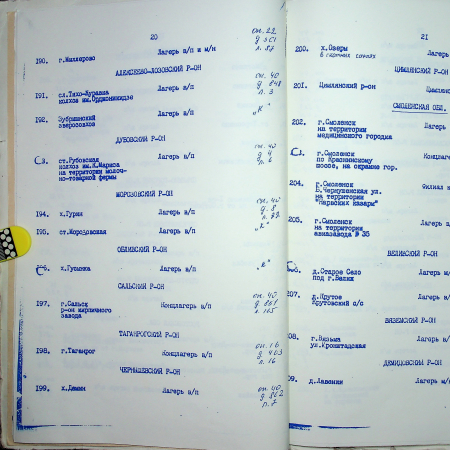 20
190. г.Миллерово Лагерь в/п и м/н оп.22 д 301 л.87
АЛЕКСЕЕВО-ЛОЗОВСКИЙ Р-ОН
191. сл.Тихо-Журавка Лагерь в/п оп.40
колхоз им.Орджоникидзе л.3
192. Зубрилинский Лагерь в/п "К"
зверосовхоз
ДУБОВСКИЙ Р-ОН
3. ст.Дубовская Лагерь в/п оп.40 д 4 л 6
колхоз им.К.Маркса
на территории молоч-
но-товарной фермы
МОРОЗОВСКИЙ Р-ОН
194. х.Гурин Лагерь в/п оп.40 д.8
195. ст.Морозовская Лагерь в/п "К"
ОБЛИВСКИЙ Р-ОН
6. х.Гусынка Лагерь в/п "К"
САЛЬСКИЙ Р-ОН
197. г.Сальск Концлагерь в/п оп.40 д 861 л.165
р-он кирпичного
завода
ТАГАНРОГСКИЙ Р-ОН
198. г.Таганрог Концлагерь в/п оп.16 д 403 л.16
ЧЕРНЫШЕВСКИЙ Р-ОН
199. х.Демин Лагерь в/п оп.40 д 862 л.7
21
200. х.Озеры Лагерь
ЦИМЛЯНСКИЙ Р-ОН
201. Цимлянский р-он
СМОЛЕНСКАЯ ОБЛ.
202. г.Смоленск Лагерь
на территории
медицинского городка
3. г.Смоленск Концлагерь
по Краснинскому
шоссе, на окраине гор.
204. г.Смоленск Филиал
Б.Чернушенская ул.
на территории
205. г.Смоленск Лагерь
на территории
авиазавода № 35
ВЕЛИЖСКИЙ Р-ОН
6. д.Старое Село Лагерь
под г.Велиж
207. д.Крутое Лагерь
Крутовский с/с
ВЯЗЕМСКИЙ Р-ОН
208. г.Вязьма Лагерь
ул.Кронштадская
ДЕМИДОВСКИЙ Р-ОН
09. д.Лавонки Лагерь